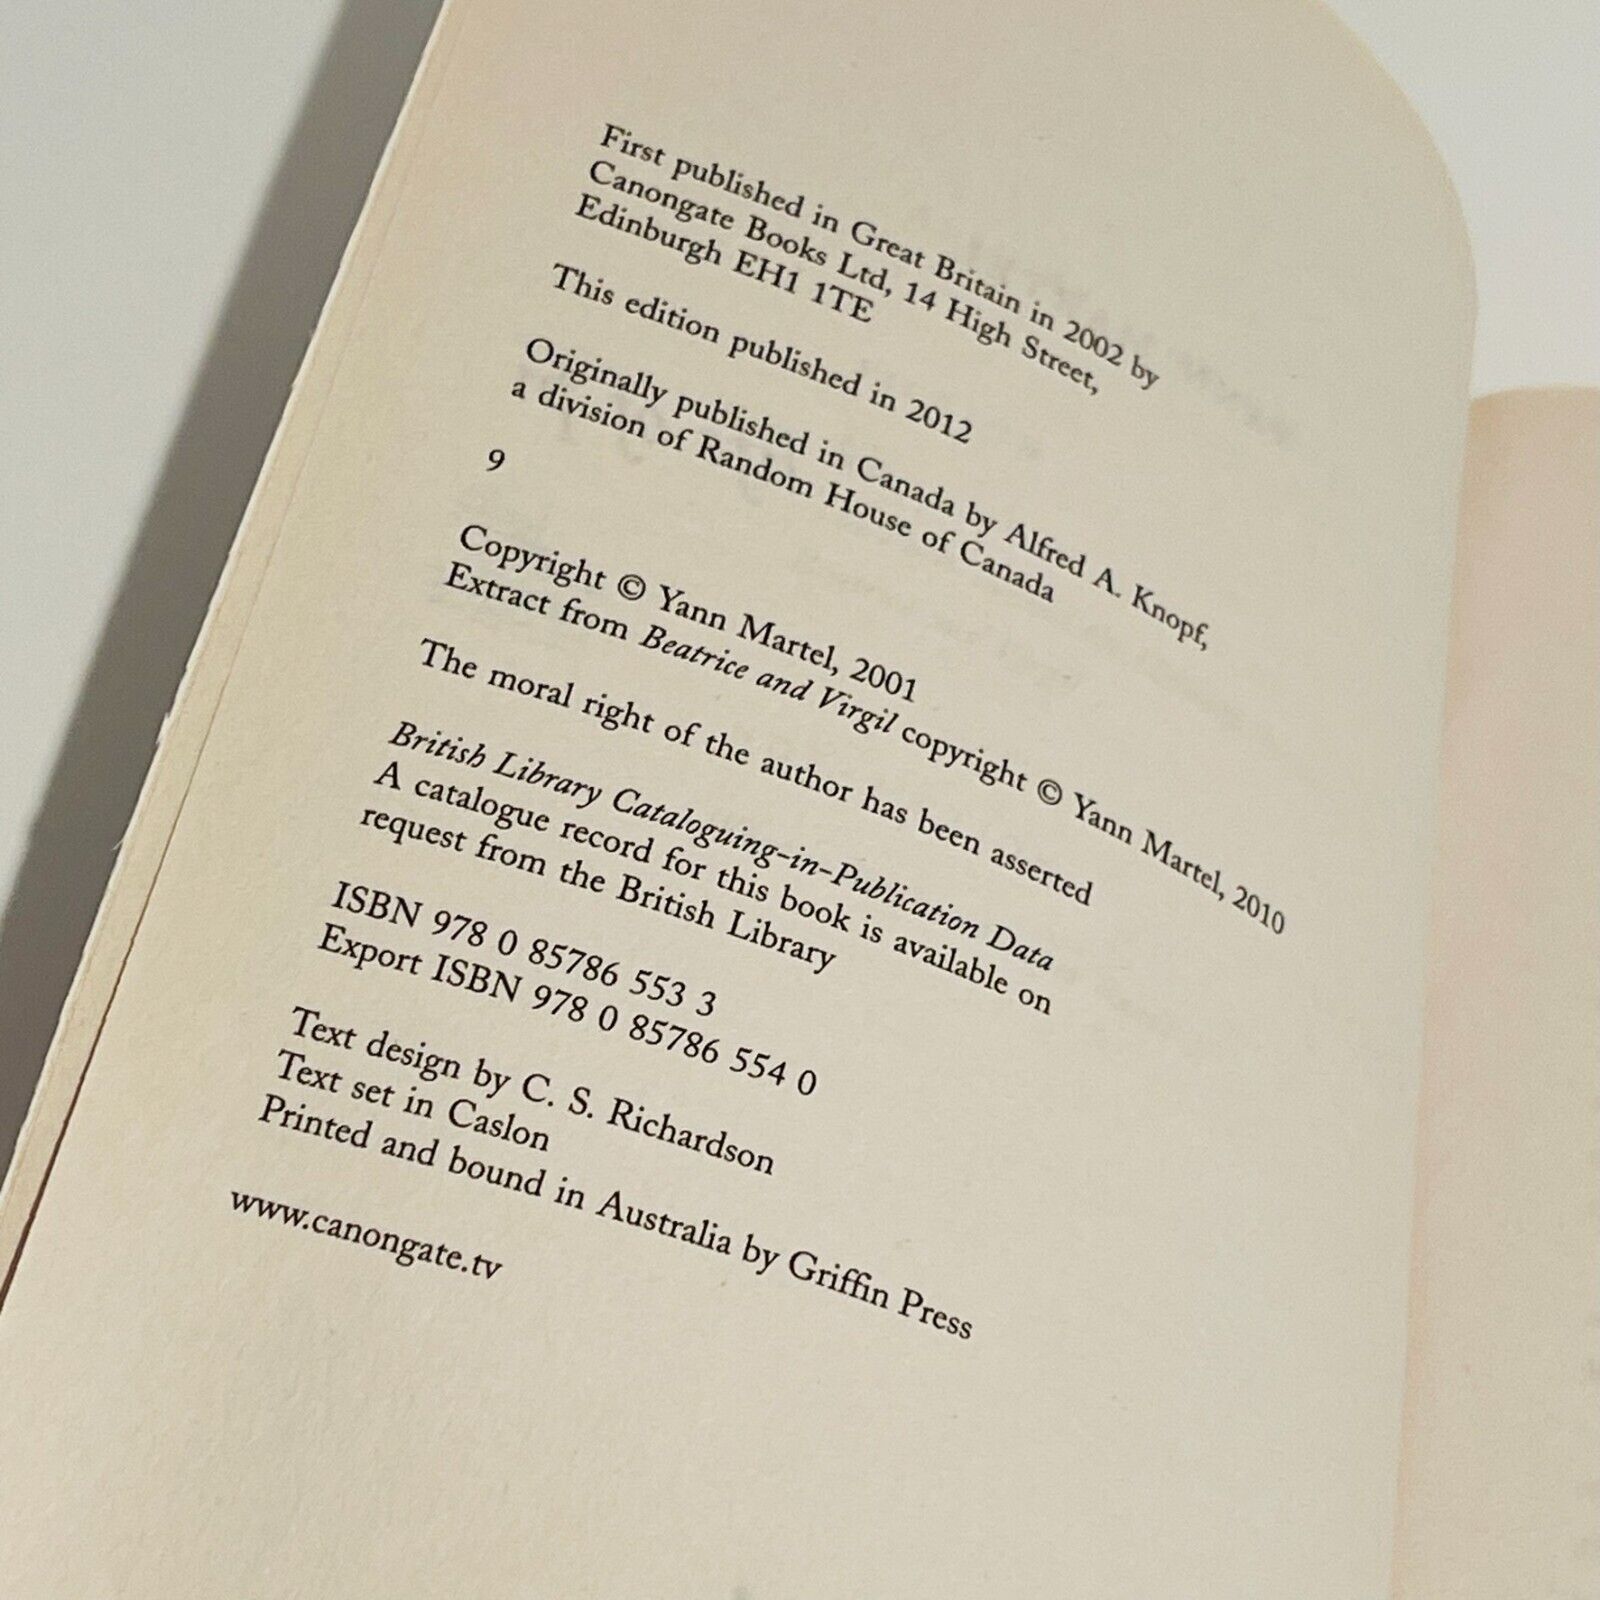 First published in Great Britain in 2002 by
Canongate Books Ltd, 14 High Street,
Edinburgh EH1 1TE
This edition published in 2012
Originally published in Canada by Alfred A. Knopf,
a division of Random House of Canada
9
Copyright © Yann Martel, 2001
Extract from Beatrice and Virgil copyright © Yann Martel, 2010
The moral right of the author has been asserted
British Library Cataloguing-in-Publication Data
A catalogue record for this book is available on
request from the British Library
ISBN 978 0 85786 553 3
Export ISBN 978 0 85786 554 0
Text design by C. S. Richardson
Text set in Caslon
Printed and bound in Australia by Griffin Press
www.canongate.tv